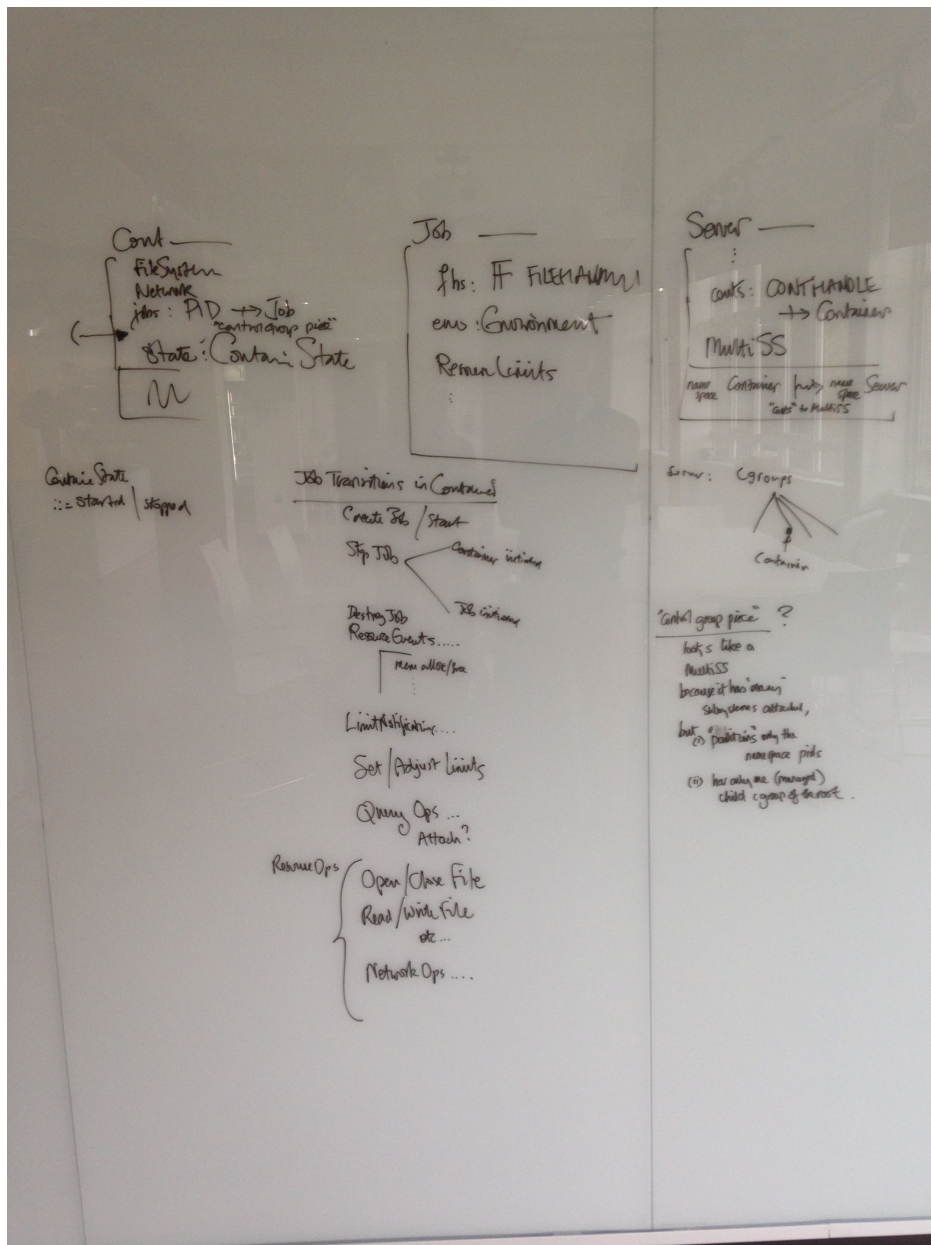 Cont
FileSystem
Network
jobs: PID ⇸ Job
"control group piece"
State: Contain State
Job
fhs: F FILEHANDLE
env: Environment
Limits
:
Server
:
conts: CONTHANDLE
⇸ Container
MultiSS
name space Container name space Server
"conts" to MultiSS
State
::= started | stopped
Job Transitions in Container
Create Job / Start
Stop Job
Container initiated
Job initiated
Destroy Job
Resource Events.....
mem alloc/free
.....
Limit Notification....
Set/Adjust Limits
Query Ops ...
Attach?
Resource Ops
Open/Close File
Read/Write File
etc...
Network Ops ....
server: Cgroups
Container
"control group piece" ?
looks like a
MultiSS
because it has "many"
subsystems attached,
but (i) "partitions" only the
namespace pids
(ii) has only one (managed)
child cgroup of the root.